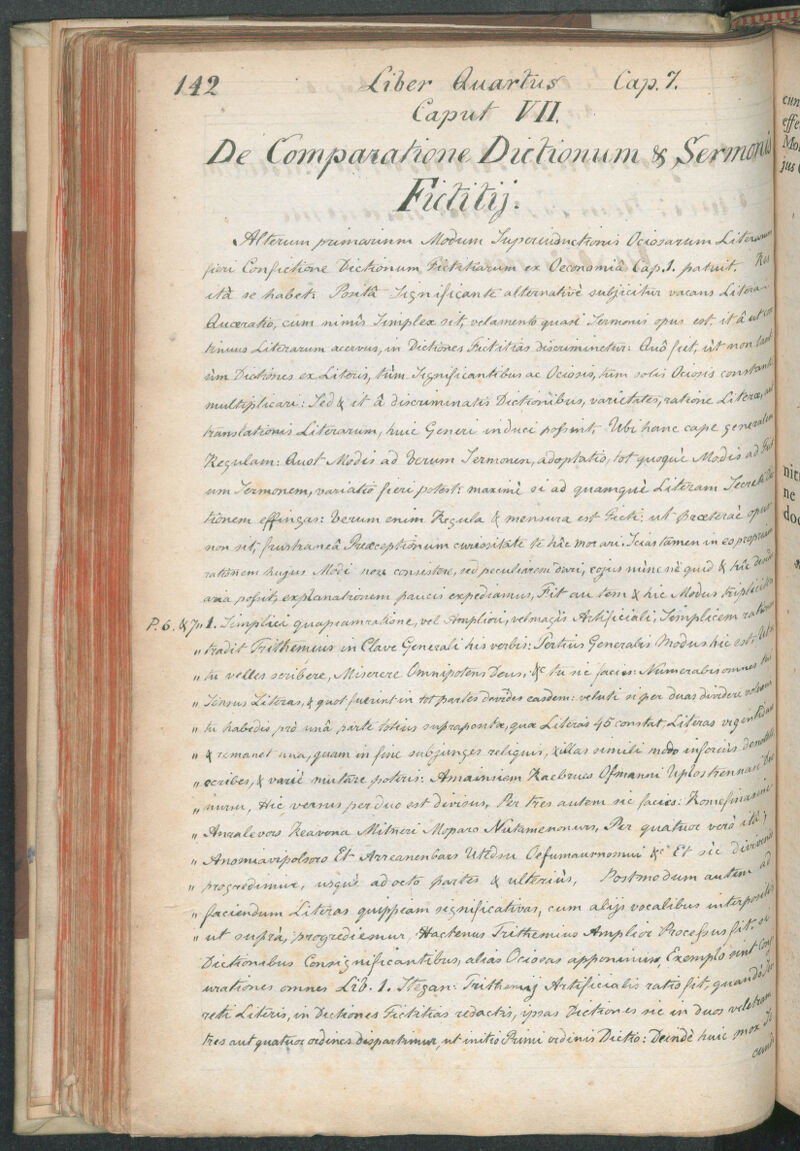 142 Liber Quartus Cap. 7.
Caput VII.
De Comparatione Dictionum & Sermonis
Fictitij.
Alterum primarium Modum Superinductionis Ociosarum Literarum
fieri Confictione Dictionum Fictitiarum ex Oeconomiâ Cap. 1. patuit. Res
itâ se habet: Positâ Significante alternativè subjicitur vacans Litera.
Quæ ratio, cum nimis Simplex sit, velamento quasi Sermonis opus est, it â ut con
tinuus Literarum acervus, in Dictiones Fictitias discriminetur: Quô fit, ùt non tant
ùm Dictiones ex Literis, tùm Significantibus ac Ociosis, tum solis Ociosis constante
multiplicari: Sed & it â discriminatis Dictionibus, varietates, ratione Literæ,
translationis Literarum, huic Generi induci possint. Ubi hanc cape generalem
Regulam: Quot Modis ad Verum Sermonem, adoptatio, tot quoquè Modis ad Fict
um Sermonem, variatio fieri potest: maximè si ad quamquè Literam Secreti Dic
tionem effingas: Verum enim Regula & mensura est Ficti: ut præterac opus
non sit, frustraneâ Præceptionum curiositate te hîc morari. Scias tamen in eo propriam
rationem hujus Modi non consistere, sed peculiarem dari, cujus nunc nè quid & hîc deside
aria possit, explanationem paucis expediamus. Fit autem & hic Modus tripliciter
P. 6. & 7 „ 1. Simplici quapiam ratione, vel Ampliori, vel magis Artificiali. Simplicem rationem
„ tradit Trithemius in Clave Generali his verbis: Tertius Generalis Modus hic est. Ut si
„ tu velles scribere, Miserere Omnipotens Deus, &c tu sic facies: Numerabis omnes tui
„ Sensus Literas, & quot fuerint in tot partes devides easdem: veluti si per duas dividere volueris
„ tu habebis prò unâ parte totius suprapositæ, quæ Literis 45 constat, Literas viginti duas
„ & remanet una, quam in fine subjunges reliquis, & illas simili modo inferius
„ scribes, & variè mutare poteris: Amainsiem Raebrues Ofmanni Uplostrennasi
„ mursu, Hic versus per duo est divisus. Per tres autem sic facies: Romesinasmi
„ Anralevors Reavona Mitneri Moparo Nutamenmurs, Per quatuor verò itâ;
„ Anomiavipolsoro Et Arreanenbars Utedsu Oefumaurnomui &c Et sic dividendo
„ progredimur, usquè ad octo partes & ulteriùs. Postmodum autem ad
„ faciendum Literas quippiam significativas, cum alijs vocalibus interpositis
„ ut suprà, progrediemur, Hactenus Trithemius Amplior Processus fit, si
Dictionibus Consignificantibus, alias Ociosas apponimus, Exemplo sint Conj
urationes omnes Lib. 1. Stegan: Trithemij Artificialis ratio fit, quandò Sec
reti Literis, in Dictiones Fictitias redactis, ipsas Dictiones sic in duos vel etiam
tres aut quatuor ordines dispartimur, ut initio Primi ordinis Dictio: Deindè huic mox Se
cundi